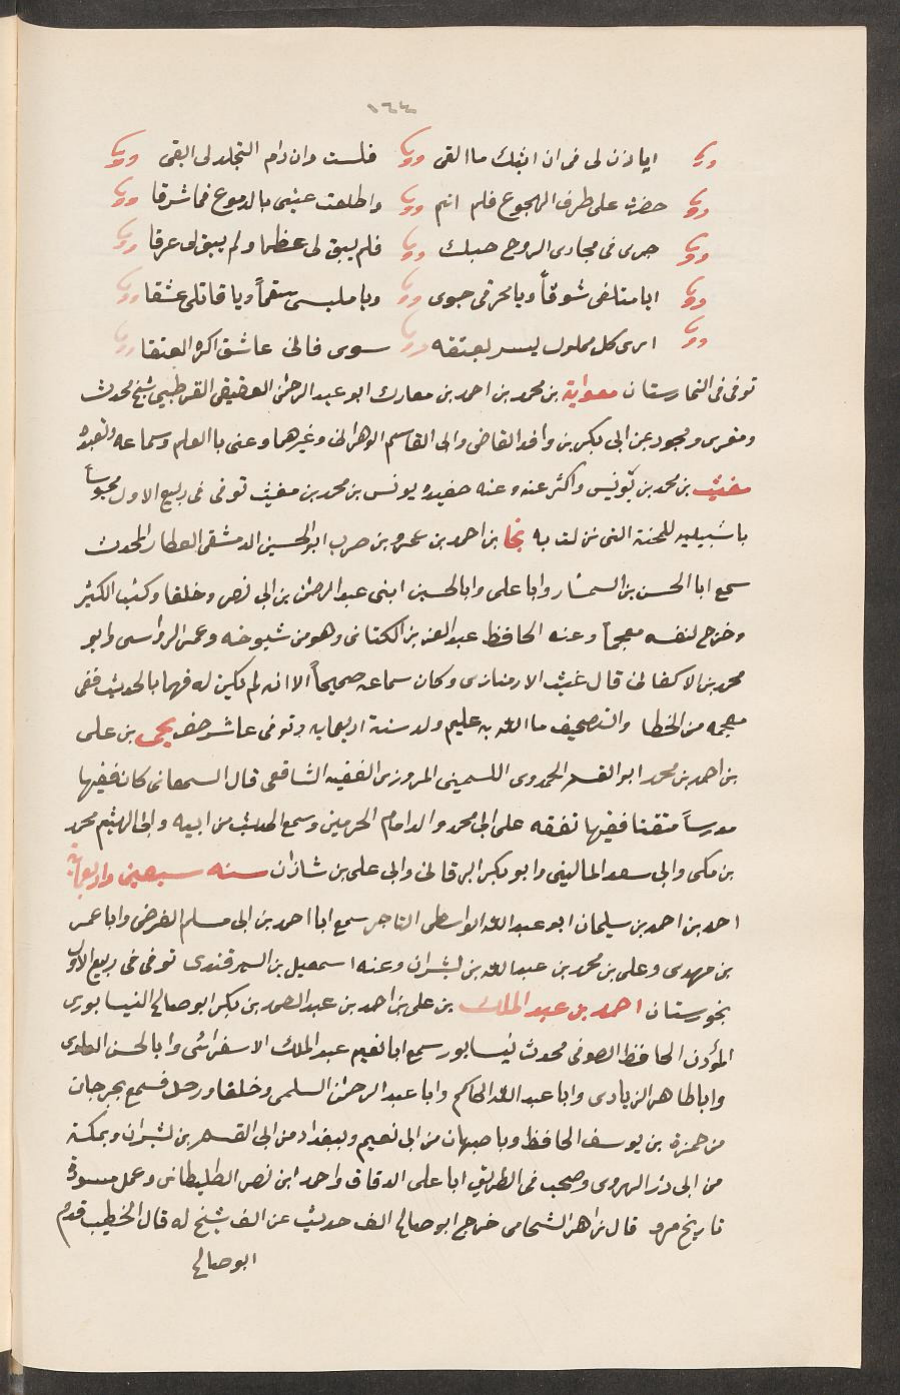 ١٦٤
ايا ذن لى فى ان ابثك ما القى فلست وان دام التجلد لى ابقى
حضرت على طرف الهجوع فلم انم واطلعت عينى بالدموع فما شرقا
جرى فى مجارى الروح حبك فلم يبق لى عظما ولم يبق لى عرقا
ايا متلفى شوقاً ويا محرقى جوى ويا ملبسى سقماً ويا قاتلى عشقا
ارى كل مملوك يسر بعتقه سوى فانى عاشق اكره العتقا
توفى فى التمارستان معواية بن محمد بن احمد بن معارك ابو عبد الرحمن العقيقى القرطبى شيخ محدث
ومقرى ومجود عن ابى بكر بن وافد القاضى وابى القاسم الوهرانى وغيرهما وعنى باالعلم وسماعه وتعبده
مغيث بن محمد بن يونس واكثر عنه وعنه حفيده يونس بن محمد بن مغيث توفى فى ربيع الاول محبوساً
باشبيليه للمحنة التى نزلت به نجا بن احمد بن عمرو بن حرب ابو الحسين الدمشقى العطار المحدث
سمع ابا الحسن بن السمسار وابا على وابا الحسين ابنى عبد الرحمن بن ابى نصر وخلقا وكتب الكثير
وخرج لنفسه معجماً وعنه الحافظ عبد العزيز الكتانى وهو من شيوخه وعمر الرواسى وابو
محمد بن الاكفانى قال غيث الارمنازى وكان سماعه صحيحاً الا انه لم يكن له فهما بالحديث ففى
معجمه من الخطا والتصحيف ما الله به عليم ولد سنة اربعمايه وتوفى عاشر صفر يحيى بن على
بن احمد بن محمد ابو القسم الحمدوى الكسمينى المروزى الفقيه الشافعى قال السمعانى كان فقيها
مدرساً متقنا فقيها تفقه على ابى محمد والد امام الحرمين وسمع الحديث من ابيه وابى الهيثم محمد
بن مكى وابى سعد المالينى وابو بكر البرقانى وابى على بن شاذان سنه سبعين واربعماية
احمد بن احمد بن سليمان ابو عبد الله الواسطى التاجر سمع ابا احمد بن ابى مسلم الفرضى وابا عمر
بن مهدى وعلى بن محمد بن عبد الله بن بشران وعنه اسمعيل بن السمرقندى توفى فى ربيع الاول
بخورستان احمد بن عبد الملك بن على بن احمد بن عبد الصمد بن بكر ابو صالح النيسابورى
المؤذن الحافظ الصوفى محدث نيسابور سمع ابا نعيم عبد الملك الاسفرائنى وابا الحسن العلوى
وابا طاهر الزيادى وابا عبد الله الحاكم وابا عبد الرحمن السلمى وخلقا ورحل فسمع بجرجان
من حمزة بن يوسف الحافظ وباصبهان من ابى نعيم وببغداد من ابى القسم بن بشران وبمكة
من ابى ذر الهروى وصحب فى الطريق ابا على الدقاق واحمد ابن نصر الطليطانى وعمل مسودة
تاريخ مرو قال زاهر الشحامى خرج ابو صالح الف حديث عن الف شيخ له قال الخطيب قدم
ابو صالح